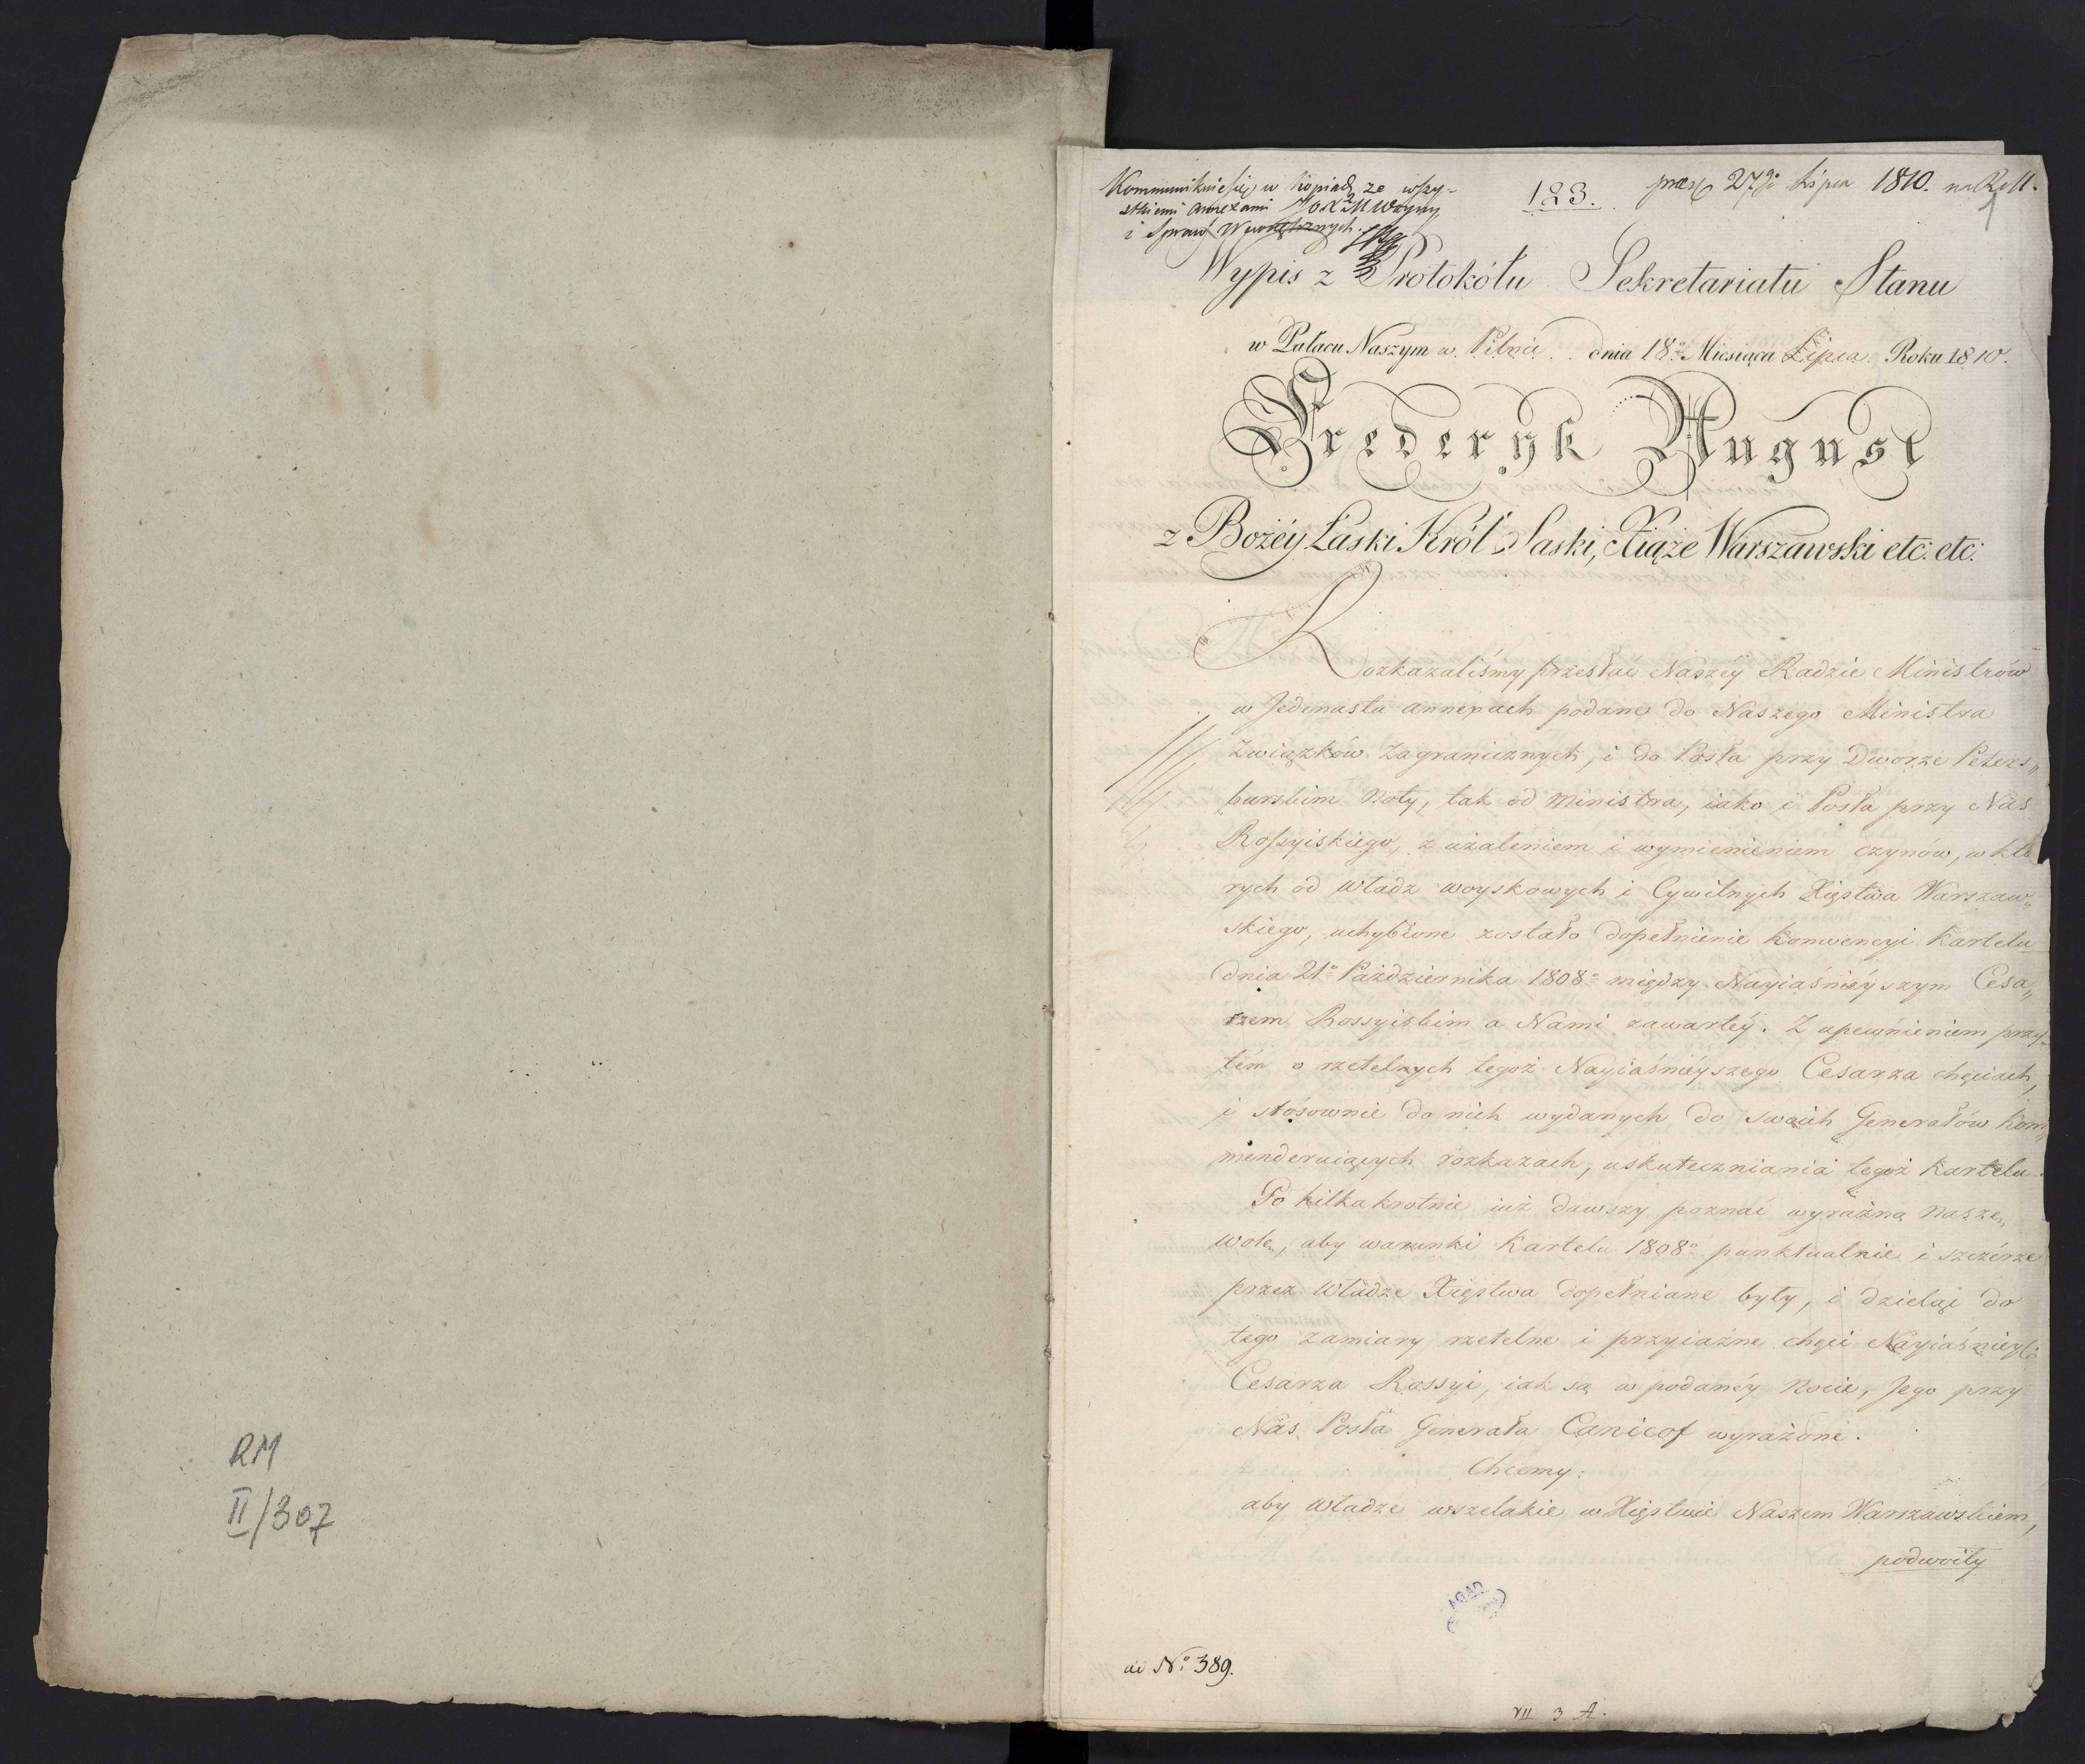 RM
II/307
Kommunikuie się w kopiach ze wszy-
stkiemi annexami
i Spraw Wewnętrznych.
123.
27 Lipca 1810.
Wypis z Protokółu Sekretariatu Stanu
w Pałacu Naszym w Pilnic dnia 18º Miesiąca Lipca Roku 1810.
Frederyk August
z Bożéy Łaski Król Saski, Xiąże Warszawski etc: etc:
Rozkazaliśmy przesłać Naszéy Radzie Ministrów
w Jedenastu annexach podane do Naszego Ministra
Związków Zagranicznych, i do Posła przy Dworze Peters„
„burskim Noty, tak od Ministra, iako i Posła przy Nas
Rossyiskiego, z użaleniem i wymienieniem czynów, w któ
rych od Władz woyskowych i Cywilnych Xięstwa Warszaw„
skiego, uchybione zostało dopełnienie Konwencyi Kartelu
dnia 21º Października 1808º między Nayiaśnieyszym Cesa„
rzem Rossyiskim a Nami zawartéy. Z upewnieniem przy„
tém o rzetelnych tegoż Nayiaśniéyszego Cesarza chęciach,
i stósownie do nich wydanych do swoich Generałów kom„
menderuiących rozkazach, uskuteczniania tegoż Kartelu.
Po kilkakrotnie iuż dawszy poznać wyraźną Naszę„
wolę, aby warunki Kartelu 1808º punktualnie i szczérze
przez Władze Xięstwa dopełniane były, i dzieląc do
tego zamiary rzetelne i przyiaźne chęci Nayiaśniey
Cesarza Rossyi, iak są w podanéy Nocie, Jego przy
Nas Posła Generała Canicof wyrażone.
Chcemy:
aby Władze wszelakie w Xięstwie Naszem Warszawskiem,
podwoiły
AGAD
ad Nº 389.
VII 3 A.